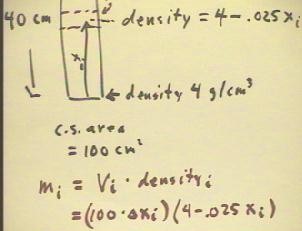 40 cm
density = 4 - .025 xi
xi
density 4 g/cm³
c.s. area
= 100 cm²
mi = Vi · densityi
= (100 · Δxi)(4 - .025 xi)